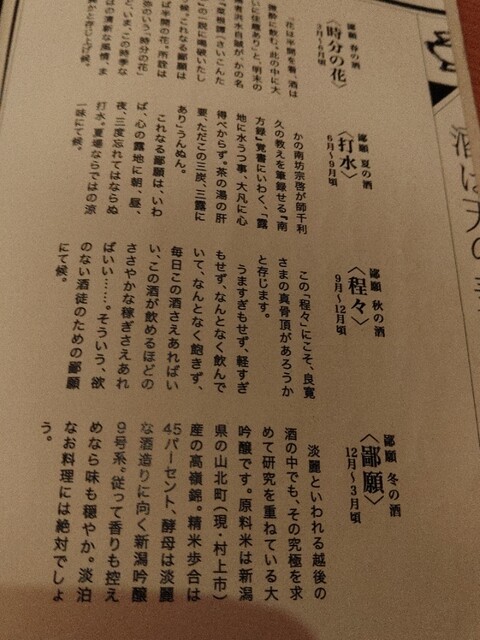 酒は天の
鄙願 春の酒
〈時分の花〉
3月〜6月頃
「花は半開を看、酒は
微酔に飲む。此の中に大
いに佳趣あり」と、明末の
の一説に喝破いたし
鄙願 夏の酒
〈打水〉
6月〜9月頃
かの南坊宗啓が師千利
久の教えを筆録せる『南
方録』覚書にいわく、「露
地に水うつ事、大凡に心
得べからず。茶の湯の肝
要、ただこの三炭、三露に
あり」うんぬん。
これなる鄙願は、いわ
ば、心の露地に朝、昼、
夜、三度忘れてはならぬ
打水。夏場ならではの涼
一味にて候。
鄙願 秋の酒
〈程々〉
9月〜12月頃
この「程々」にこそ、良寛
さまの真骨頂があろうか
と存じます。
うますぎもせず、軽すぎ
もせず、なんとなく飲んで
いて、なんとなく飽きず、
毎日この酒さえあればい
い、この酒が飲めるほどの
ささやかな稼ぎさえあれ
ばいい……。そういう、欲
のない酒徒のための鄙願
にて候。
鄙願 冬の酒
〈鄙願〉
12月〜3月頃
淡麗といわれる越後の
酒の中でも、その究極を求
めて研究を重ねている大
吟醸です。原料米は新潟
県の山北町(現・村上市)
産の高嶺錦。精米歩合は
45パーセント、酵母は淡麗
な酒造りに向く新潟吟醸
9号系。従って香りも控え
めなら味も穏やか。淡泊
なお料理には絶対でしょ
う。